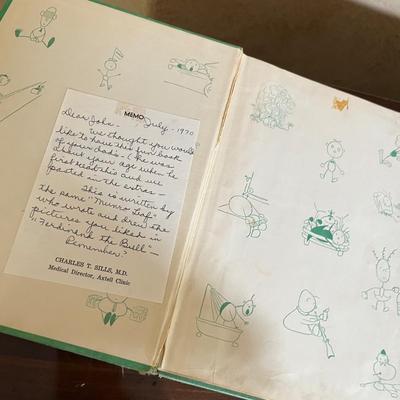 MEMO
July - 1970
Dear John -
We thought you would
like to have this fun book
of your dad's - (he was
about your age when he
first read this and we
pasted in the extras -
This is written by
the same "Munro Leaf"
who wrote and drew the
pictures you liked in
"Ferdinand the Bull" -
Remember?
CHARLES T. SILLS, M.D.
Medical Director, Axtell Clinic